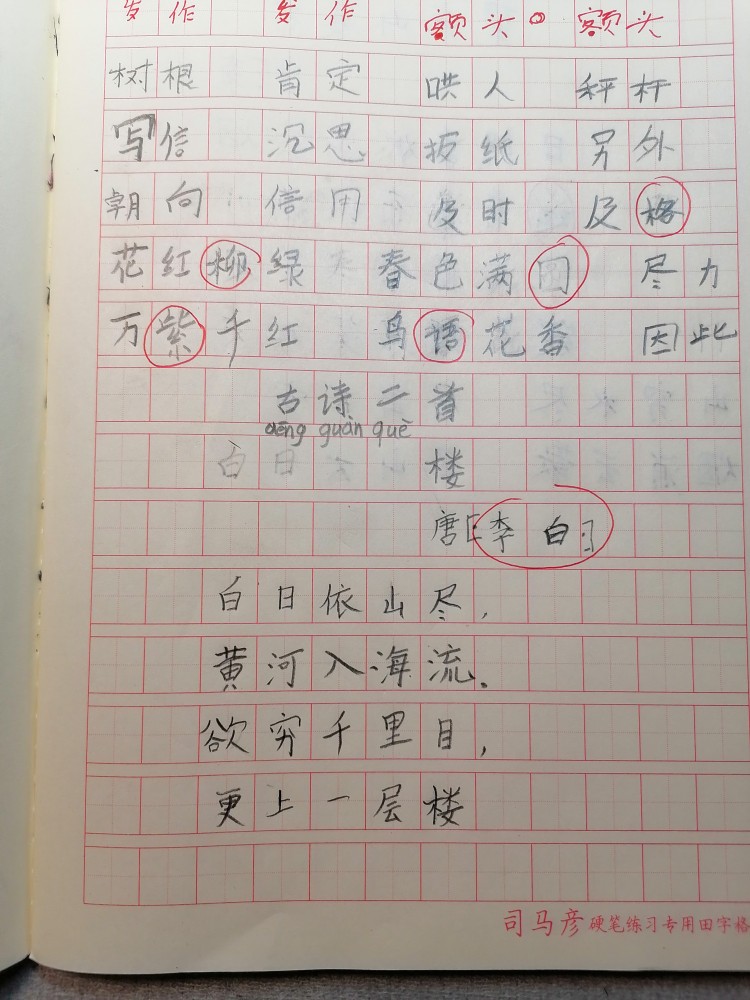 发作 发作 额头。额头
树根 肯定 哄人 秤杆
写信 沉思 扳纸 另外
朝向 信用 及时 及格
花红柳绿 春色满园 尽力
万紫千红 鸟语花香 因此
古诗二首
dēng guàn què
白日 楼
唐[李白]
白日依山尽,
黄河入海流.
欲穷千里目,
更上一层楼
司马彦硬笔练习专用田字格